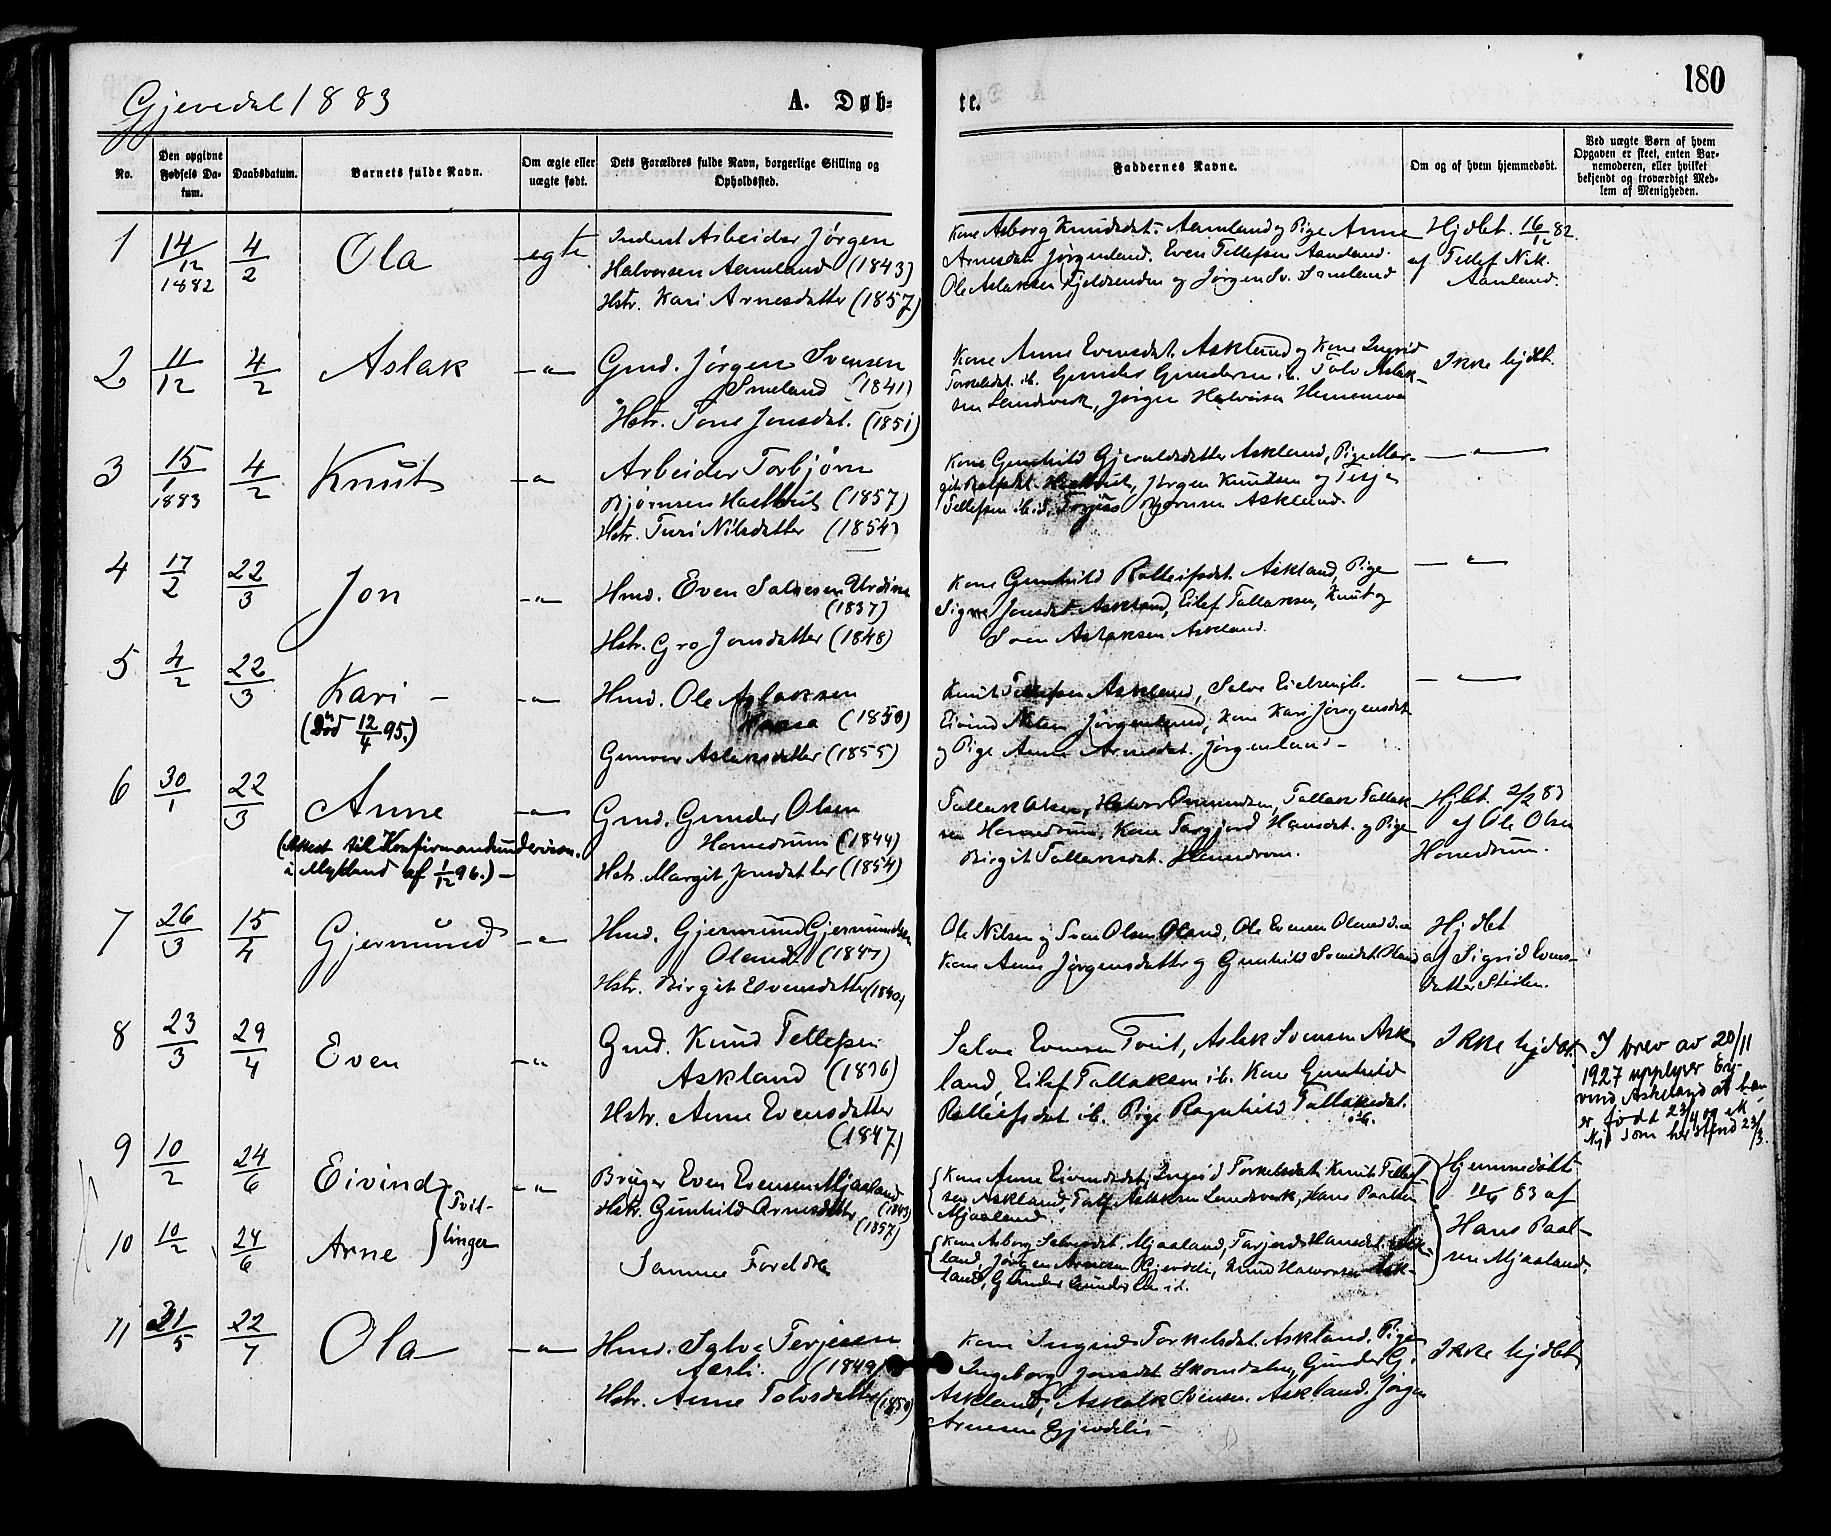 Gjevedal 1883
A. Døb-
te.
180
No.
Den opgivne Fødsels Datum.
Daabsdatum.
Barnets fulde Navn.
Om ægte eller uægte født.
Dets Forældres fulde Navn, borgerlige Stilling og Opholdssted.
Faddernes Navne.
Om og af hvem hjemmedøbt.
Ved uægte Børn af hvem Opgaven er skeet, enten Barnemoderen, eller hvilket bekjendt og troværdigt Medlem af Menigheden.
1
14/12 1882
4/2
Ola
egte
Inderst Arbeider Jørgen
Halvorsen Aamland (1843)
Hstr. Kari Arnesdatter (1857)
Kone Asborg Knudsdat. Aamland og Pige Anne
Arnesdat. Jørgenland. Even Tellefsen Aamland.
Ole Aslaksen Fjeldsenden og Jørgen Sv. Smeland
Hjdbt. 16/12 82
af Tellef Nik.
Aamland.
2
11/12
4/2
Aslak
-"-
Gmd. Jørgen Svensen
Smeland (1841)
Hstr. Tone Jonsdat. (1851)
Kone Anne Evensdat. Askland og Kone Ingrid
Torkelsdat. ib. Gunder Gundersen ib. Tolv Aslak-
sen Landsverk, Jørgen Halvorsen
Ikke hjdbt.
3
15/1 1883
4/2
Knut
-"-
Arbeider Torbjørn
Bjørnsen (1857)
Hstr. Turi Nilsdatter (1854)
Kone Gunhild Gjeruldsdatter Askland, Pige Mar-
git Jørgen Knudsen og Terje
Tellefsen ibid. Bjørnsen Askland.
-"-
4
17/2
22/3
Jon
-"-
Hmd. Even Salvesen Urdine
(1837)
Hstr. Gro Jonsdatter (1848)
Kone Gunhild Rolleifsdat. Askland, Pige
Signe Jonsdat. Askland, Eilef Tallaksen, Knut og
Sven Aslaksen Askland.
-"-
5
4/2
22/3
Kari -
(Död 12/4 95.)
-"-
Hmd. Ole Aslaksen
(1850)
Gunvor Aslaksdatter (1855)
Knut Tellefsen Askland, Salve
Eivind Nilsen Jørgenland, Kone Kari Jørgensdat.
og Pige Anne Arnesdat. Jørgenland -
-"-
6
30/1
22/3
Anne
(Attest til Konfirmandundervisn.
i Mykland af 1/12 96.) -
-"-
Gmd. Gunder Olsen
Homdrum (1844)
Hstr. Margit Jonsdatter (1854)
Tallak Olsen, Halvor Omundsen, Tallak Tallak-
sen Homdrum, Kone Targjerd Hansdat. og Pige
Birgit Tallaksdat. Homdrom.
Hjbt. 2/2 83
af Ole Olsen
Homdrum.
7
26/3
15/4
Gjermund
-"-
Hmd. Gjermund Gjermundsen
Oland (1847)
Hstr. Birgit Evensdatter (1840)
Ole Nilsen og Sven Olsen Oland, Ole Evensen
Kone Anne Jørgensdatter og Gunhild Svensdat. Oland
Hjdbt
af Sigrid Evens-
datter Stedlen.
8
23/3
29/4
Even
-"-
Gmd. Knud Tellefsen
Askland (1836)
Hstr. Anne Evensdatter
(1847)
Salve Evensen Tveit, Aslak Svensen Ask
land, Eilef Tallaksen ib. Kone Gunhild
Rolleifsdat ib. Pige Ragnhild Tallaksdat.
ib.
Ikke hjdbt.
I brev av 20/11
1927 upplyser Ey-
vind Askeland at han
er fødd 23/4 og ikkje
som her stend 23/3.
9
10/2
24/6
Eivind
-"-
Bruger Even Evensen Mjaaland
(1843)
Hstr. Gunhild Arnesdatter
(1857)
Kone Anne Eivindsdat, Ingrid Torkelsdat. Knut Tellef-
sen Askland, Tolf Aslaksen Landsverk, Hans Paalsen
Mjaaland.
Hjemmedøbt
11/4 83 af
Hans Paal-
sen Mjaaland.
10
10/2
24/6
Arne
Tvil-
linger
Samme Foreldre
Kone Asborg Salvesdat. Mjaaland, Tarjerd Hansdat. Ask-
land, Jørgen Arnesen Gjevdeli, Knud Halvorsen Ask-
land, Gunder Gundersen id.
11
21/5
22/7
Ola
-"-
Hmd. Salve Terjesen
Aasli. (1849)
Hstr. Anne Tolvsdatter (1850)
Kone Ingrid Torkelsdat. Askland. Pige
Ingeborg Jonsdat. Skomdalen, Gunder G.
Askland, Aslak Svensen Askland. Jørgen
Arnesen Gjevdeli -
Ikke hjdbt